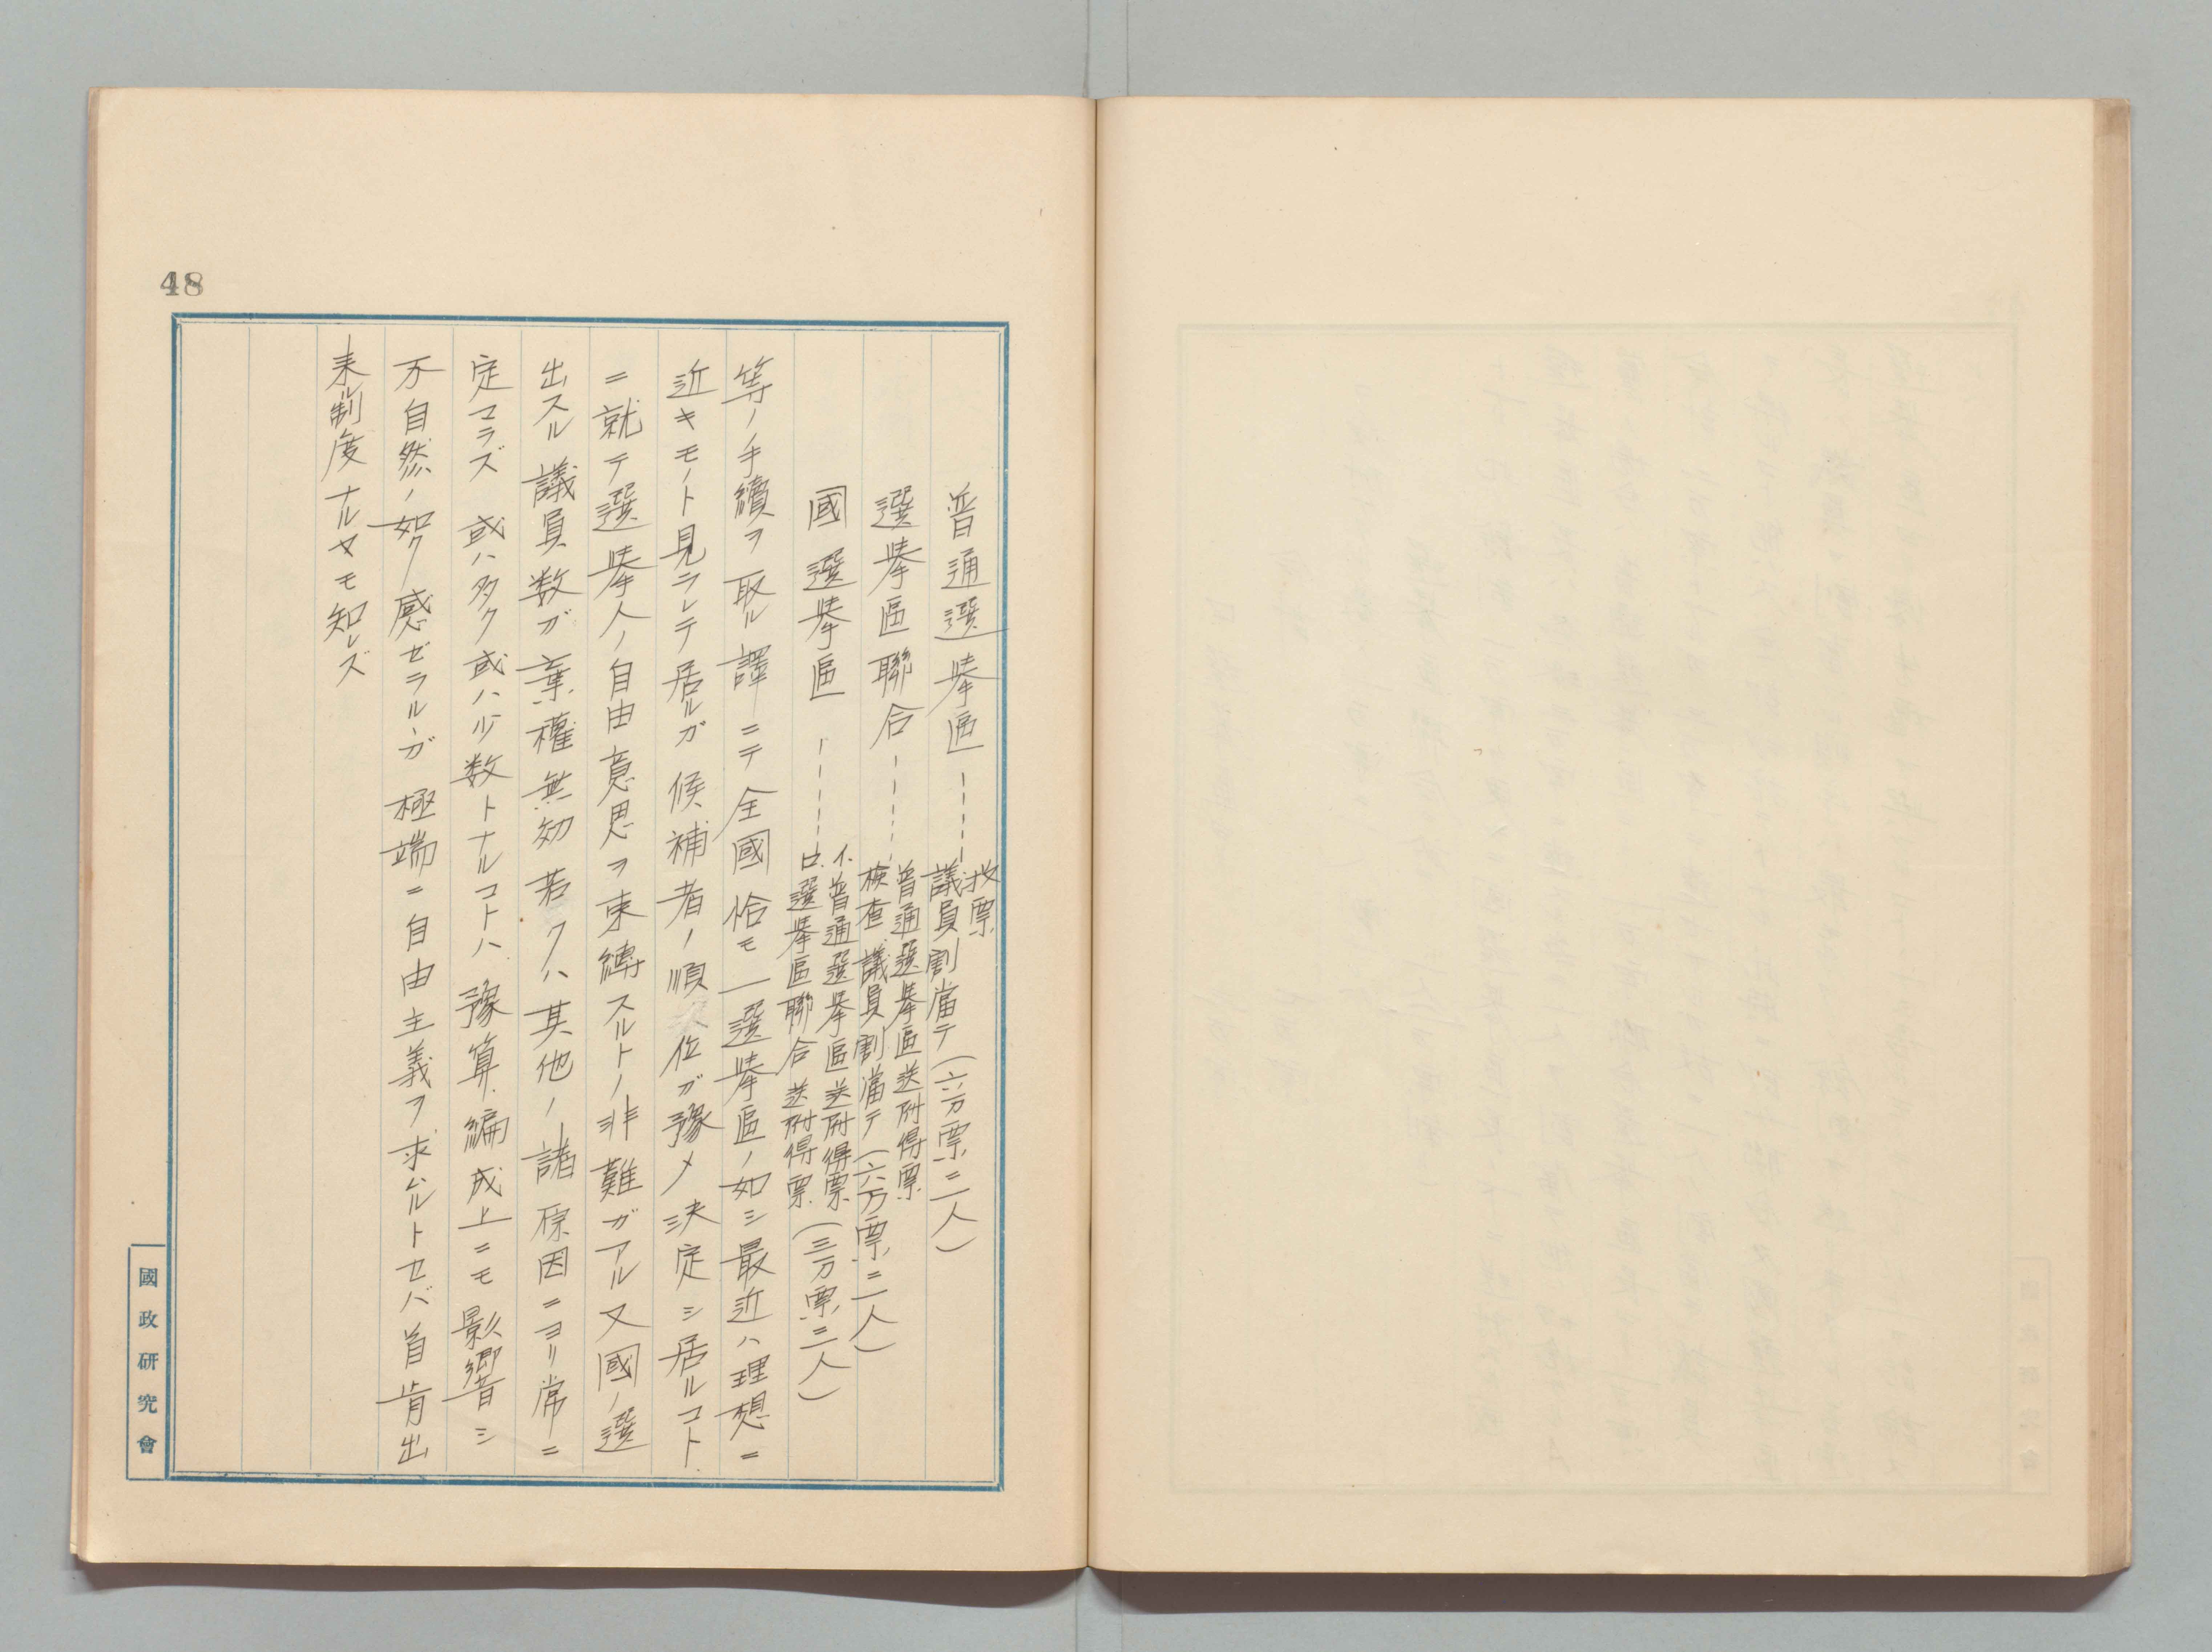 48
普通選挙區-----投票
議員割當テ(六万票ニ一人)
選挙區聯合-----普通選挙區送附得票
検査議員割當テ(六万票ニ一人)
國選挙區------イ.普通選挙區送附得票
ロ.選挙區聯合送附得票(三万票ニ一人)
等ノ手續ヲ取ル譯ニテ全國恰モ一選挙區ノ如シ最近ハ理想ニ
近キモノト見ラレテ居ルガ候補者ノ順位ガ豫メ決定シ居ルコト
ニ就テ選挙人ノ自由意思ヲ束縛スルトノ非難ガアル又國ノ選
出スル議員数ガ棄權無効若クハ其他ノ諸原因ニヨリ常ニ
定マラズ或ハ多ク或ハ少数トナルコトハ豫算編成上ニモ影響シ
不自然ノ如ク感ゼラルヽガ極端ニ自由主義ヲ求ムルトセバ首肯出
来ル制度ナルヤモ知レズ
國政研究會